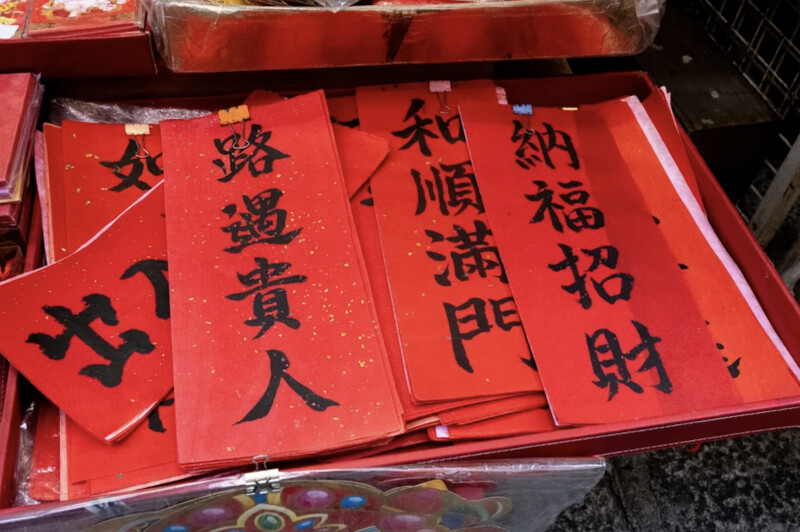 出
如
路遇貴人
和順滿門
納福招財